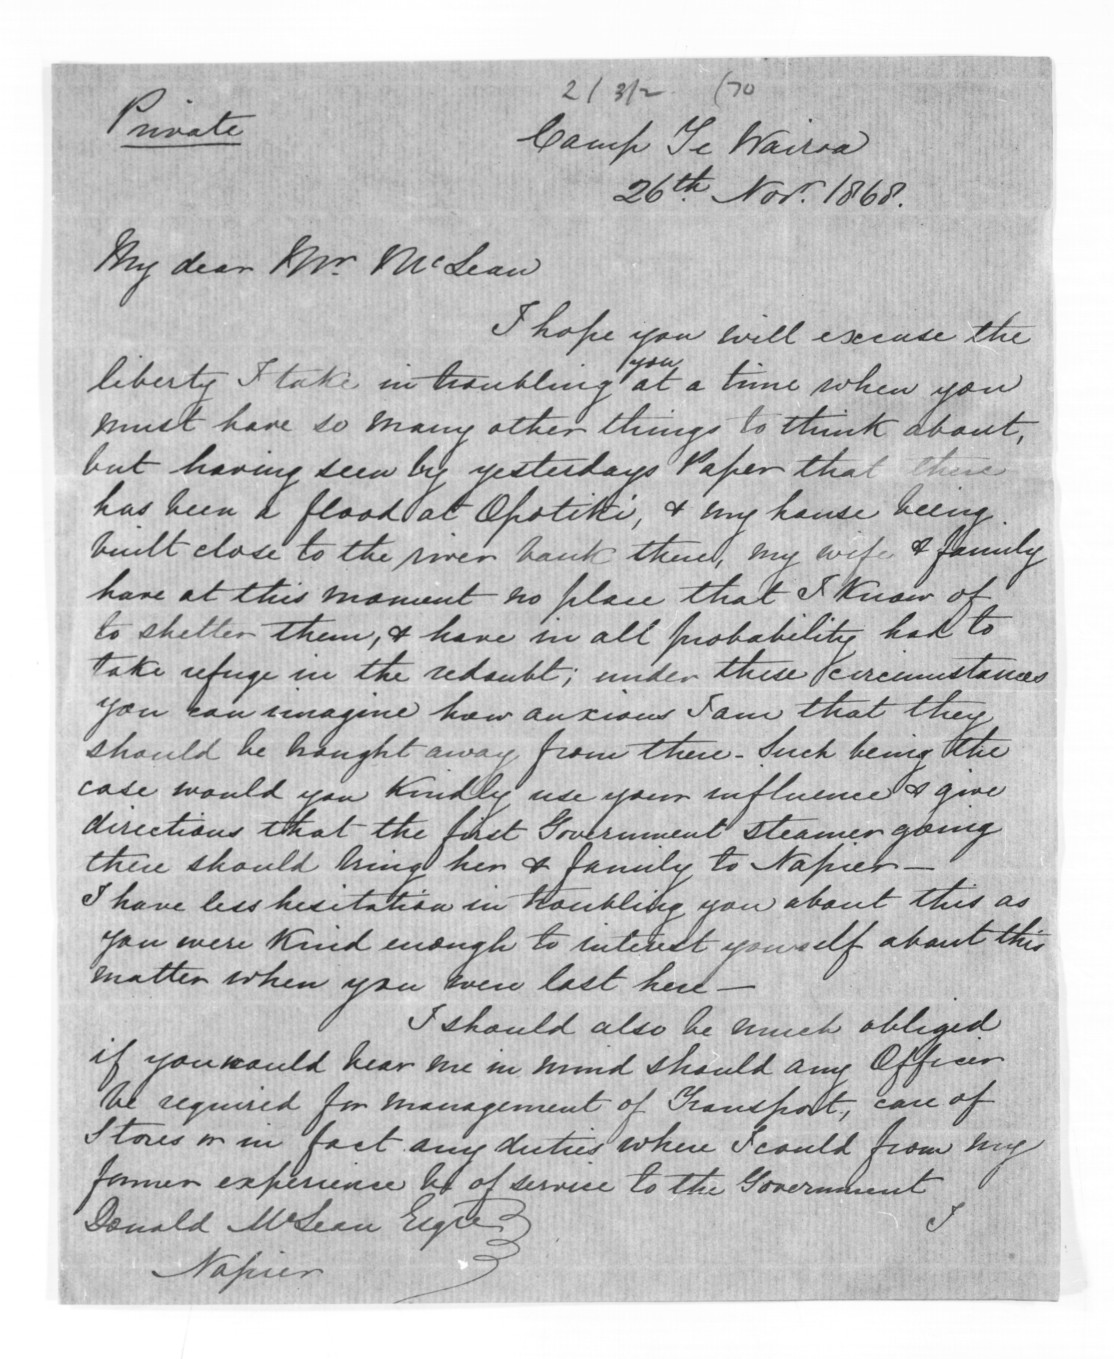 2/3/2 (70
Private
Camp Te Wairoa
26th Novr. 1868.
My dear Mr. McLean
I hope you will excuse the
liberty I take in troubling you at a time when you
must have so many other things to think about,
but having seen by yesterdays Paper that there
has been a flood at Opotiki, & my house being
built close to the river bank there, my wife & family
have at this moment no place that I know of
to shelter them, & have in all probability had to
take refuge in the redoubt; under these circumstances
you can imagine how anxious I am that they
should be brought away from there - Such being the
case would you kindly use your influence & give
directions that the first Government steamer going
there should bring her & family to Napier -
I have less hesitation in troubling you about this as
you were kind enough to interest yourself about this
matter when you were last here -
I should also be much obliged
if you would bear me in mind should any Officer
be required for management of Transport, care of
Stores or in fact any duties where I could from my
former experience be of service to the Government
Donald McLean Esqre I
Napier